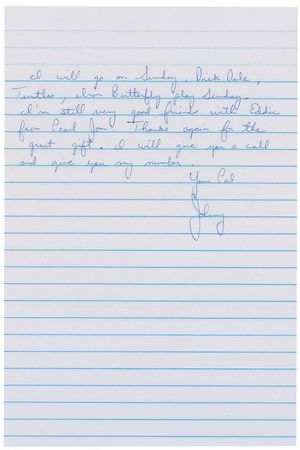 I will go on Sunday. Dick Dale,
Turtles, Iron Butterfly play Sunday.
I'm still very good friends with Eddie
from Pearl Jam! Thanks again for the
great gift. I will give you a call
and give you my number.
Your Pal
Johnny